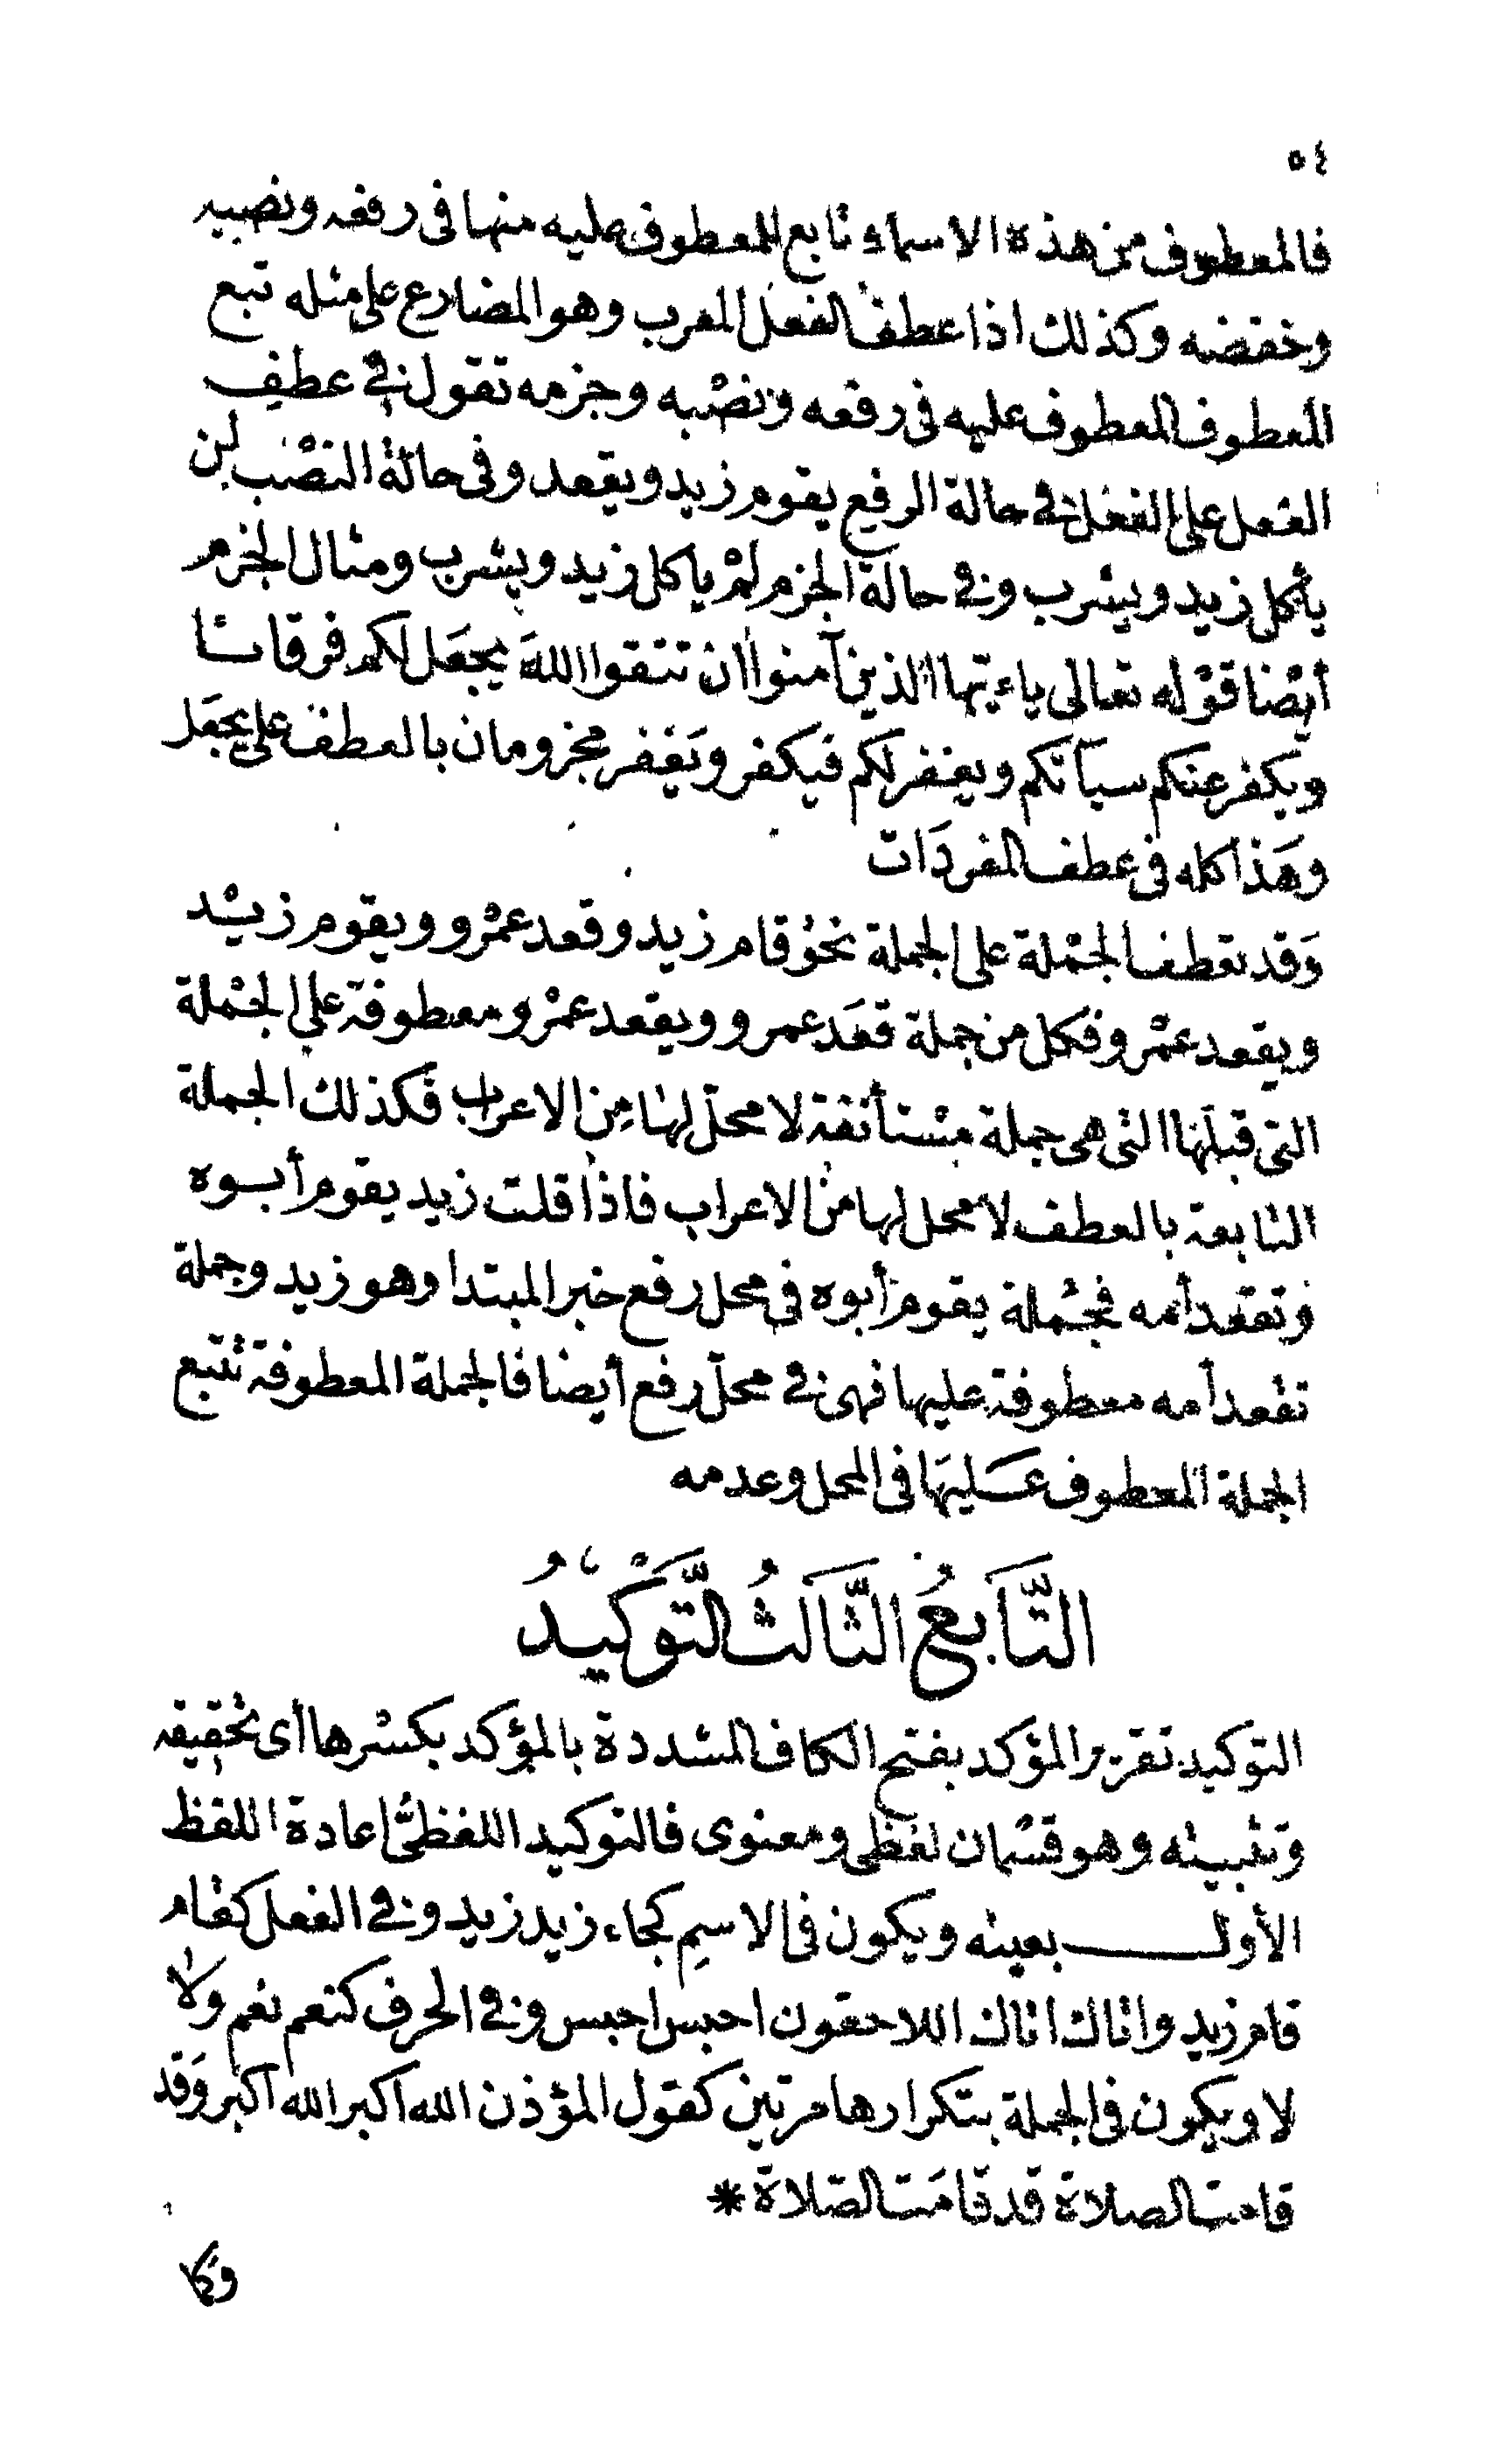 ٥٤
فالمعطوف من هذه الاسماء تابع للمعطوف عليه منها فى رفعه ونصبه
وخفضه وكذلك اذا عطف الفعل المعرب وهو المضارع على مثله تبع
المعطوف المعطوف عليه فى رفعه ونصْبه وجزمه تقول فى عطف
الفعل على الفعل فى حالة الرفع يقوم زيد ويقعد وفى حالة النصْب لن
يأكل زيد ويشرب وفى حالة الجزم لمْ ياكل زيد ويشرب ومثال الجزم
أيْضا قوْله تعالى ياءيّها الذين آمنوا ان تتقوا اللهَ يجعَل لكم فرقانا
ويكفر عنكم سيآتكم ويغفر لكم فيكفر ويَغفر مجزومان بالعطف على يجعَل
وهَذا كله فى عطف المفردَات
وَقد تعطف الجمْلة على الجملة نحوُ قام زيد وقعد عمْرو ويقوم زيْد
ويقعد عمْرو فكل من جملة قعَد عمرو ويقعد عمْرو معطوفة على الجمْلة
التى قبلَها التى هى جملة مسْتأنفة لا محلّ لها مِن الاعراب فكذلك الجملة
التابعة بالعطف لا محل لها من الاعراب فاذا قلت زيد يقوم أبوه
وتقعد أمه فجمْلة يقوم أبوه فى محل رفع خبر المبتدا وهو زيد وجملة
تقعد أمه معطوفة عليها فهى فى محلّ رفع أيضا فالجملة المعطوفة تتبع
الجملة المعطوف عَليهَا فى المحل وعدمه
التَّابعُ الثَّالثُ التَّوْكيدُ
التوكيد تقرير المؤكد بفتح الكاف المشددة بالمؤكد بكسْرها أى تحقيقه
وتثبيته وهو قسْمان لفظى ومعنوى فالتوكيد اللفظىّ اعادة اللفظ
الأول بعينه ويكون فى الاسمِ كجاء زيد زيد وفى الفعل كقام
قام زيد واتاك اتاك اللاحقون احبس احبس وفى الحرف كنعم نعم ولا
لا ويكون فى الجملة بتكرارها مرتين كقول المؤذن الله اكبر الله اكبر وَقد
قامت الصلاة قد قامَت الصّلاة *